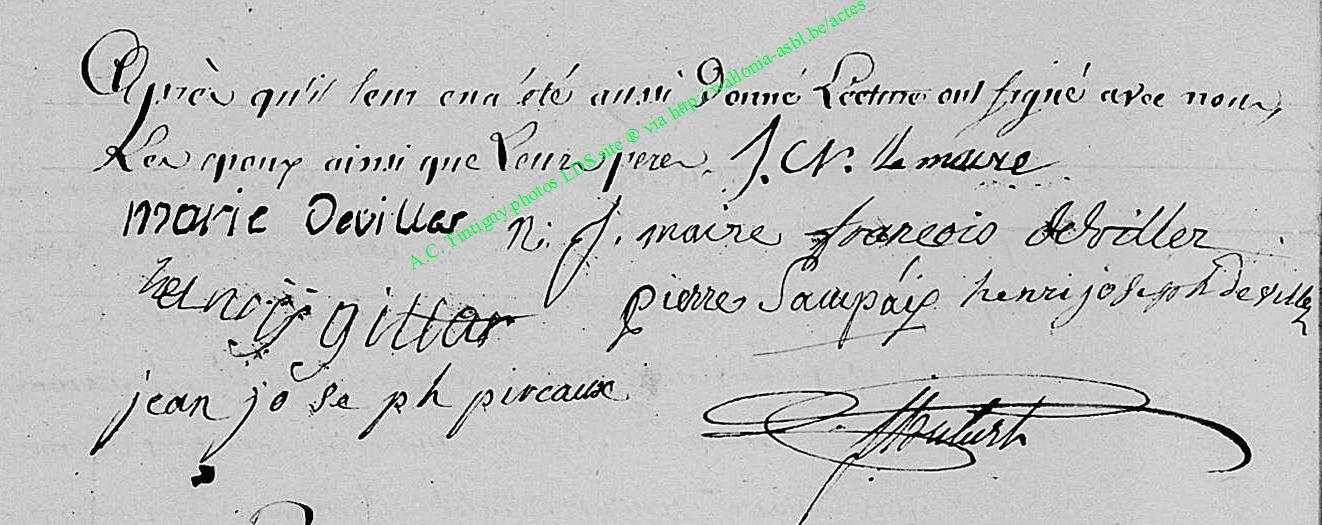 Après qu'il leur en a été aussi Donné Lecture ont signé avec nous,
Les epoux ainsi que Leurs peres. J. N. le maire
marie Devillar N. J. maire françois deviller
henry j gillar pierre Sampaix henri joseph deviller
jean jo se ph pireaux
A.C. Tintigny photos LDS site ® via http://wallonia-asbl.be/actes